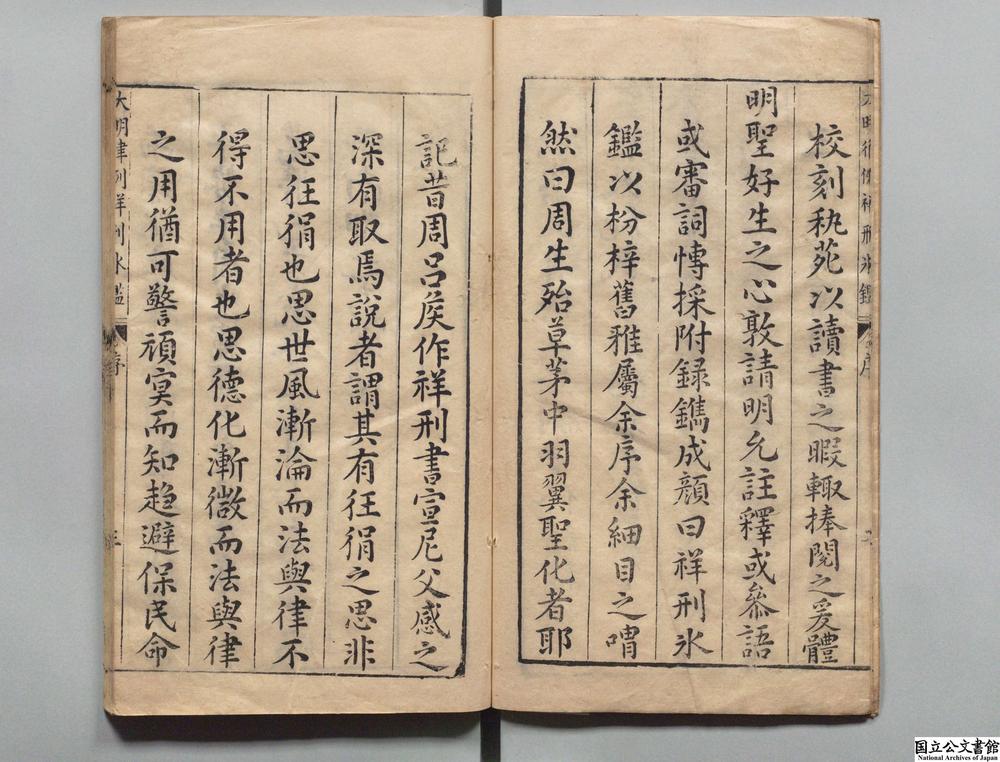 校刻秇苑以讀書之暇輙捧閱之爰體
明聖好生之心敦請明允註釋或叅語
或審詞愽採附録鐫成顔曰祥刑氷
鑑以枌梓舊雅屬余序余細目之喟
然曰周生殆草茅中羽翼聖化者耶
記昔周吕矦作祥刑書宣尼父感之
深有取焉説者謂其有徃狷之思非
思徃狷也思世風漸淪而法與律不
得不用者也思德化漸微而法與律
之用猶可警頑冥而知趋避保民命
大明律例祥刑氷鑑
序
三
国立公文書館
National Archives of Japan